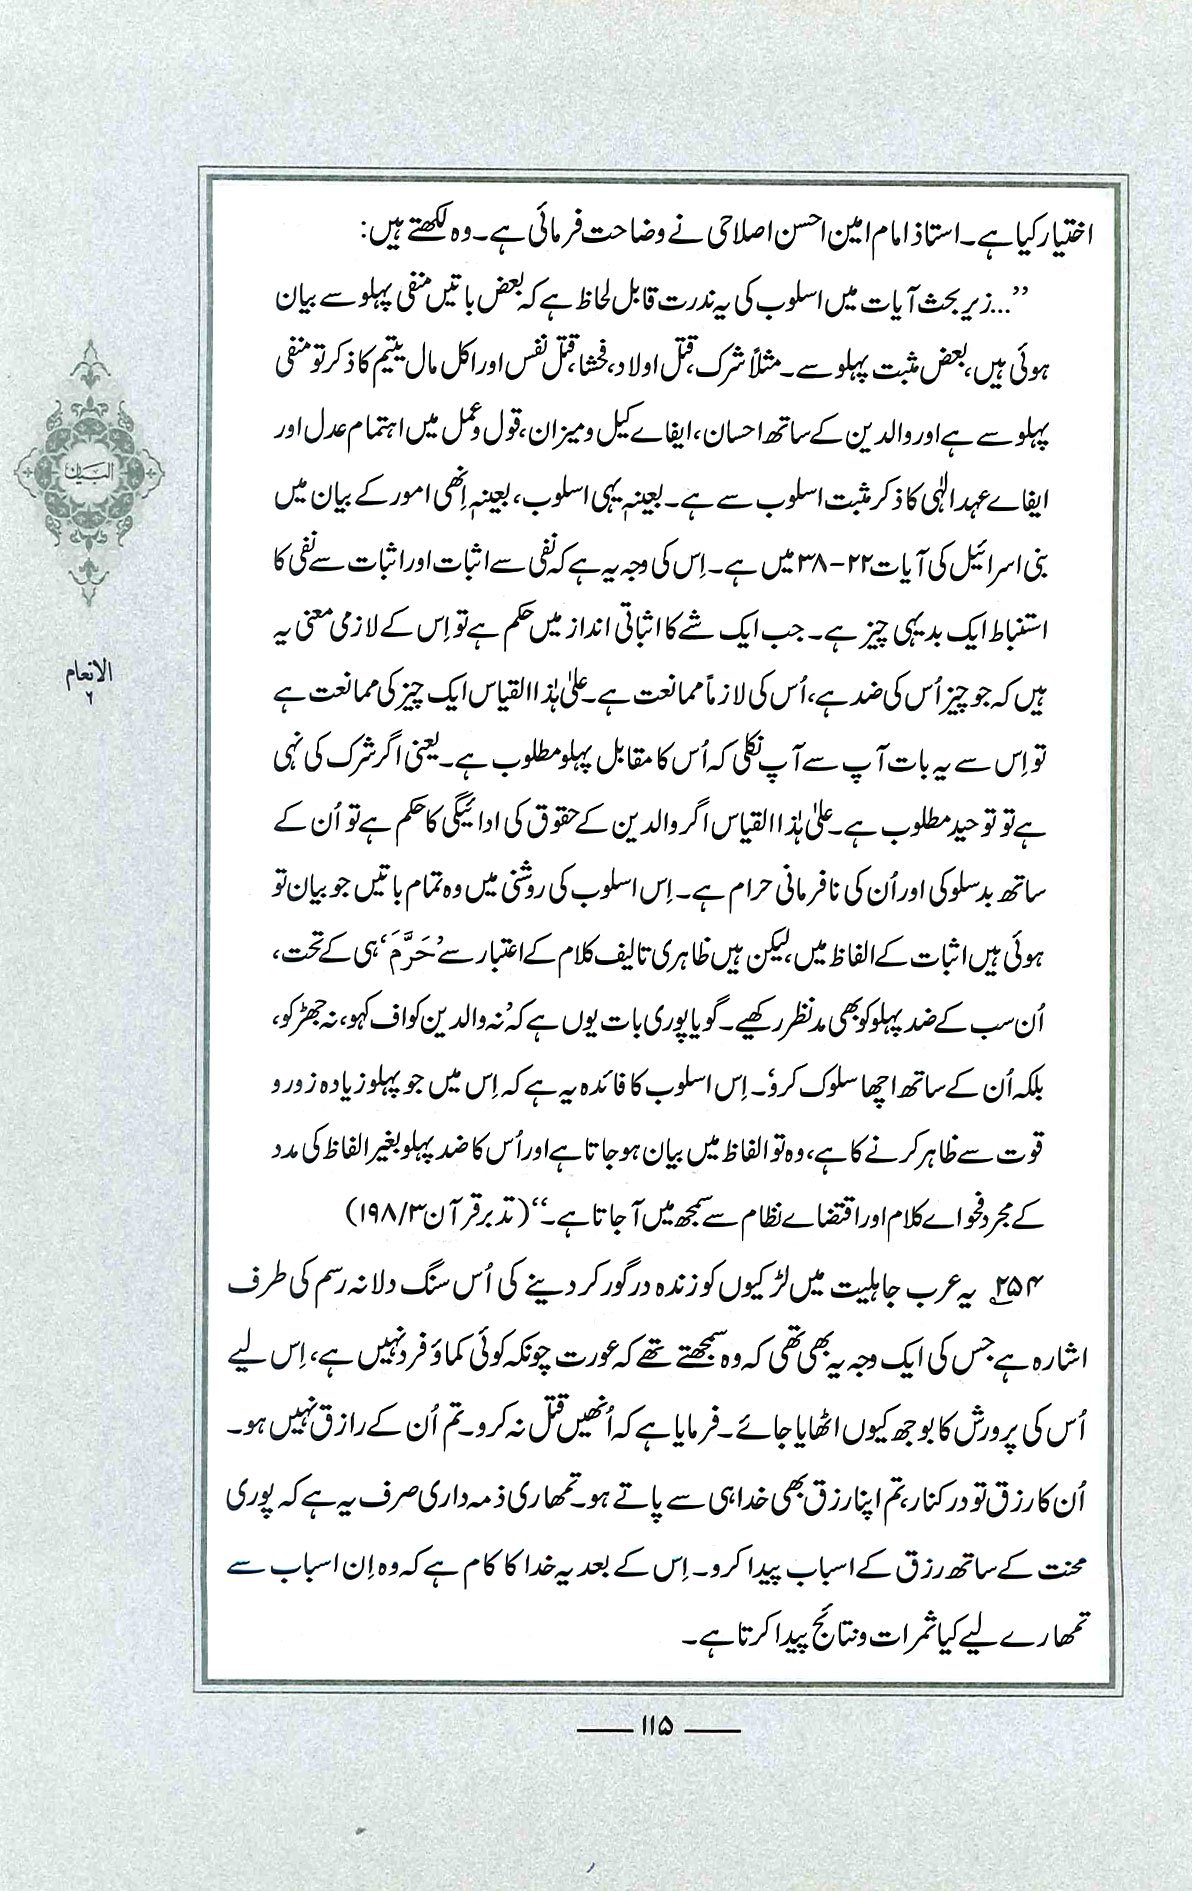 اختیار کیا ہے۔ استاذ امام امین احسن اصلاحی نے وضاحت فرمائی ہے۔ وہ لکھتے ہیں:
’’...زیر بحث آیات میں اسلوب کی یہ ندرت قابل لحاظ ہے کہ بعض باتیں منفی پہلو سے بیان
ہوئی ہیں، بعض مثبت پہلو سے۔ مثلاً شرک، قتل اولاد، فحشا، قتل نفس اور اکل مال یتیم کا ذکر تو منفی
پہلو سے ہے اور والدین کے ساتھ احسان، ایفاے کیل و میزان، قول و عمل میں اہتمام عدل اور
ایفاے عہد الٰہی کا ذکر مثبت اسلوب سے ہے۔ بعینہٖ یہی اسلوب، بعینہٖ اِنھی امور کے بیان میں
بنی اسرائیل کی آیات ۲۲-۳۸ میں ہے۔ اِس کی وجہ یہ ہے کہ نفی سے اثبات اور اثبات سے نفی کا
استنباط ایک بدیہی چیز ہے۔ جب ایک شے کا اثباتی انداز میں حکم ہے تو اِس کے لازمی معنی یہ
ہیں کہ جو چیز اُس کی ضد ہے، اُس کی لازماً ممانعت ہے۔ علیٰ ہٰذا القیاس ایک چیز کی ممانعت ہے
تو اِس سے یہ بات آپ سے آپ نکلی کہ اُس کا مقابل پہلو مطلوب ہے۔ یعنی اگر شرک کی نہی
ہے تو توحید مطلوب ہے۔ علیٰ ہٰذا القیاس اگر والدین کے حقوق کی ادائیگی کا حکم ہے تو اُن کے
ساتھ بدسلوکی اور اُن کی نافرمانی حرام ہے۔ اِس اسلوب کی روشنی میں وہ تمام باتیں جو بیان تو
ہوئی ہیں اثبات کے الفاظ میں، لیکن ہیں ظاہری تالیف کلام کے اعتبار سے ’حَرَّمَ‘ ہی کے تحت،
اُن سب کے ضد پہلو کو بھی مدنظر رکھیے۔ گویا پوری بات یوں ہے کہ ’نہ والدین کو اف کہو، نہ جھڑکو،
بلکہ اُن کے ساتھ اچھا سلوک کرو‘۔ اِس اسلوب کا فائدہ یہ ہے کہ اِس میں جو پہلو زیادہ زور و
قوت سے ظاہر کرنے کا ہے، وہ تو الفاظ میں بیان ہو جاتا ہے اور اُس کا ضد پہلو بغیر الفاظ کی مدد
کے مجرد فحواے کلام اور اقتضاے نظام سے سمجھ میں آجاتا ہے۔‘‘ (تدبر قرآن ۳/ ۱۹۸)
۲۵۴ یہ عرب جاہلیت میں لڑکیوں کو زندہ درگور کر دینے کی اُس سنگ دلانہ رسم کی طرف
اشارہ ہے جس کی ایک وجہ یہ بھی تھی کہ وہ سمجھتے تھے کہ عورت چونکہ کوئی کماؤ فرد نہیں ہے، اِس لیے
اُس کی پرورش کا بوجھ کیوں اٹھایا جائے۔ فرمایا ہے کہ اُنھیں قتل نہ کرو۔ تم اُن کے رازق نہیں ہو۔
اُن کا رزق تو درکنار، تم اپنا رزق بھی خدا ہی سے پاتے ہو۔ تمھاری ذمہ داری صرف یہ ہے کہ پوری
محنت کے ساتھ رزق کے اسباب پیدا کرو۔ اِس کے بعد یہ خدا کا کام ہے کہ وہ اِن اسباب سے
تمھارے لیے کیا ثمرات و نتائج پیدا کرتا ہے۔
البیان
الانعام
۶
۱۱۵